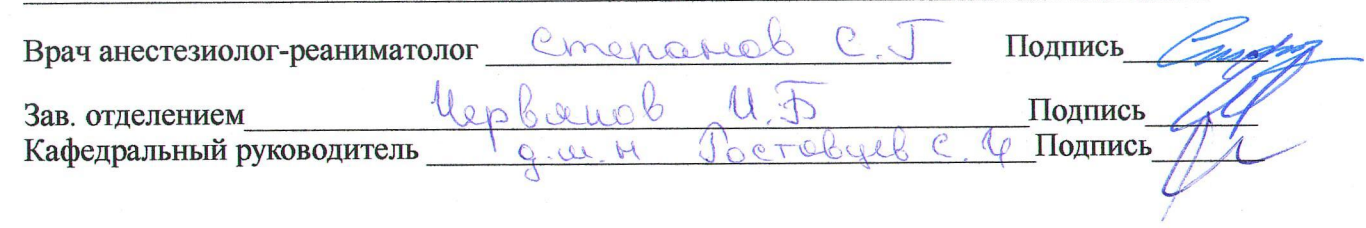 Врач анестезиолог-реаниматолог Степанов С.Г Подпись
Зав. отделением Червяков И.Б Подпись
Кафедральный руководитель д.м.н Ростовцев С.И Подпись